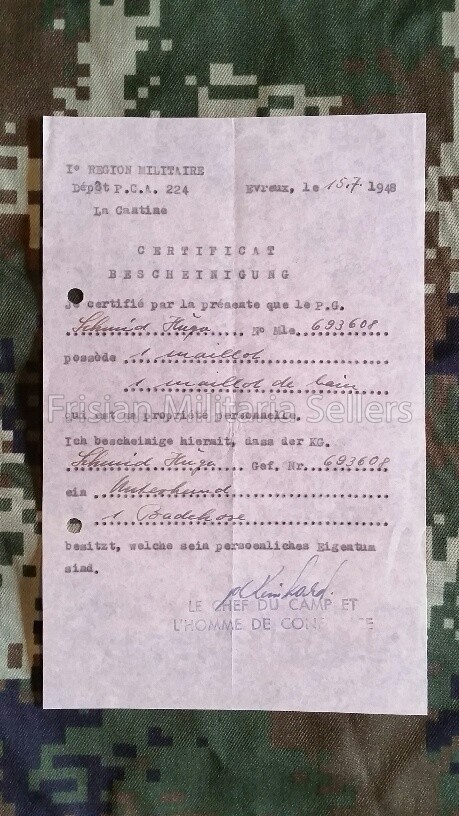 I° REGION MILITAIRE
Dépôt P.C.A. 224
Evreux, le 15.7. 1948
La Cantine
CERTIFICAT
BESCHEINIGUNG
Je certifié par la présente que le P.G.
Schmid Hugo N° Mle. 693608
possède 1 maillot
1 maillot de bain
qui est sa propriété personelle.
Ich bescheinige hiermit, dass der KG.
Schmid Hugo Gef. Nr. 693608
ein Unterhemd
1 Badehose
besitzt, welche sein persoenliches Eigentum
sind.
LE CHEF DU CAMP ET
L'HOMME DE CONF
Frisian Militaria Sellers